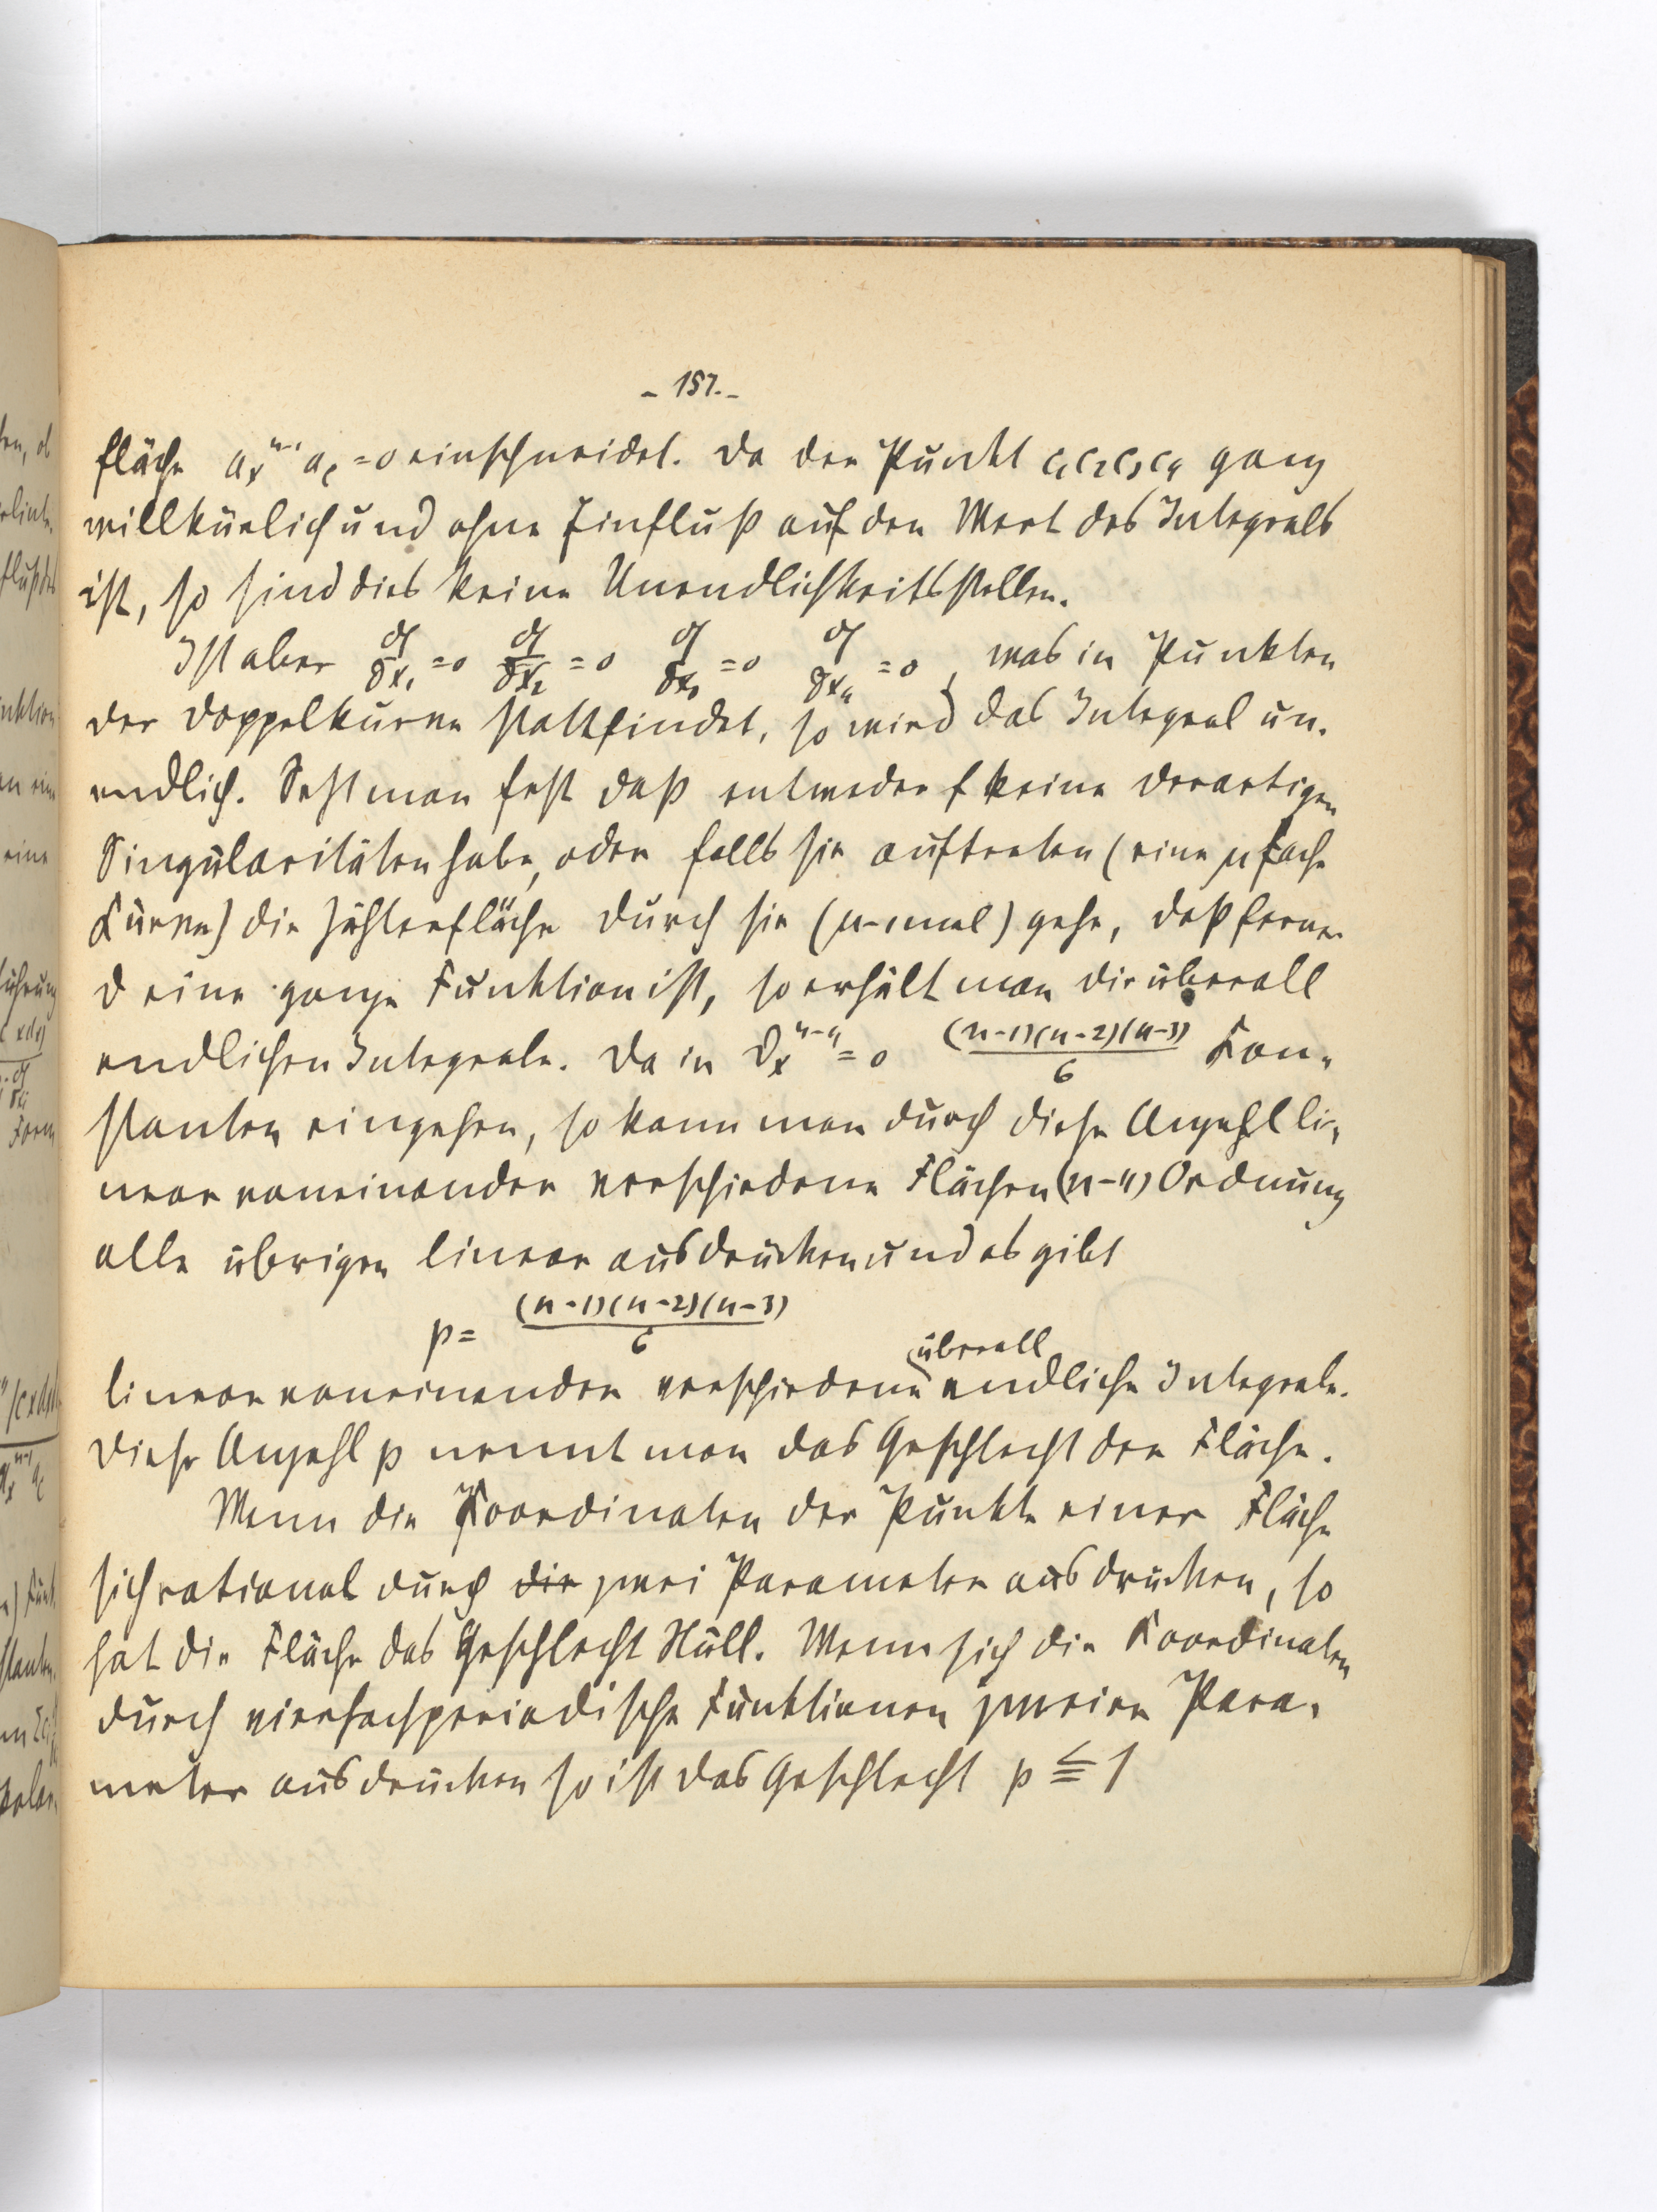 - 157. -
fläche aₓⁿ⁻¹ a_c = 0 einschneidet. Da der Punkt c₁c₂c₃c₄ ganz
willkürlich und ohne Einfluß auf den Wert des Integrals
ist, so sind dies keine Unendlichkeitsstellen.
Ist aber ∂f/∂x₁ = 0 ∂f/∂x₂ = 0 ∂f/∂x₃ = 0 ∂f/∂x₄ = 0, was in Punkten
der Doppelkurve stattfindet, so wird das Integral un-
endlich. Setzt man fest daß entweder f keine derartigen
Singularitäten habe, oder falls sie auftreten (eine µ fache
Kurve) die Zählerfläche durch sie (µ-1 mal) gehe, daß ferner
ϑ eine ganze Funktion ist, so erhält man die überall
endlichen Integrale. Da in ϑₓⁿ⁻⁴ = 0 (n-1)(n-2)(n-3)/6 Kon-
stanten eingehen, so kann man durch diese Anzahl li-
near voneinander verschiedene Flächen (n-4) Ordnung
alle übrigen linear ausdrücken und es gibt
p = (n-1)(n-2)(n-3)/6
linear voneinander verschiedene überall endliche Integrale.
Diese Anzahl p nennt man das Geschlecht der Fläche.
Wenn die Koordinaten der Punkte einer Fläche
sich rational durch die zwei Parameter ausdrücken, so
hat die Fläche das Geschlecht Null. Wenn sich die Koordinaten
durch vierfachperiodische Funktionen zweier Para-
meter ausdrücken so ist das Geschlecht p ≦ 1